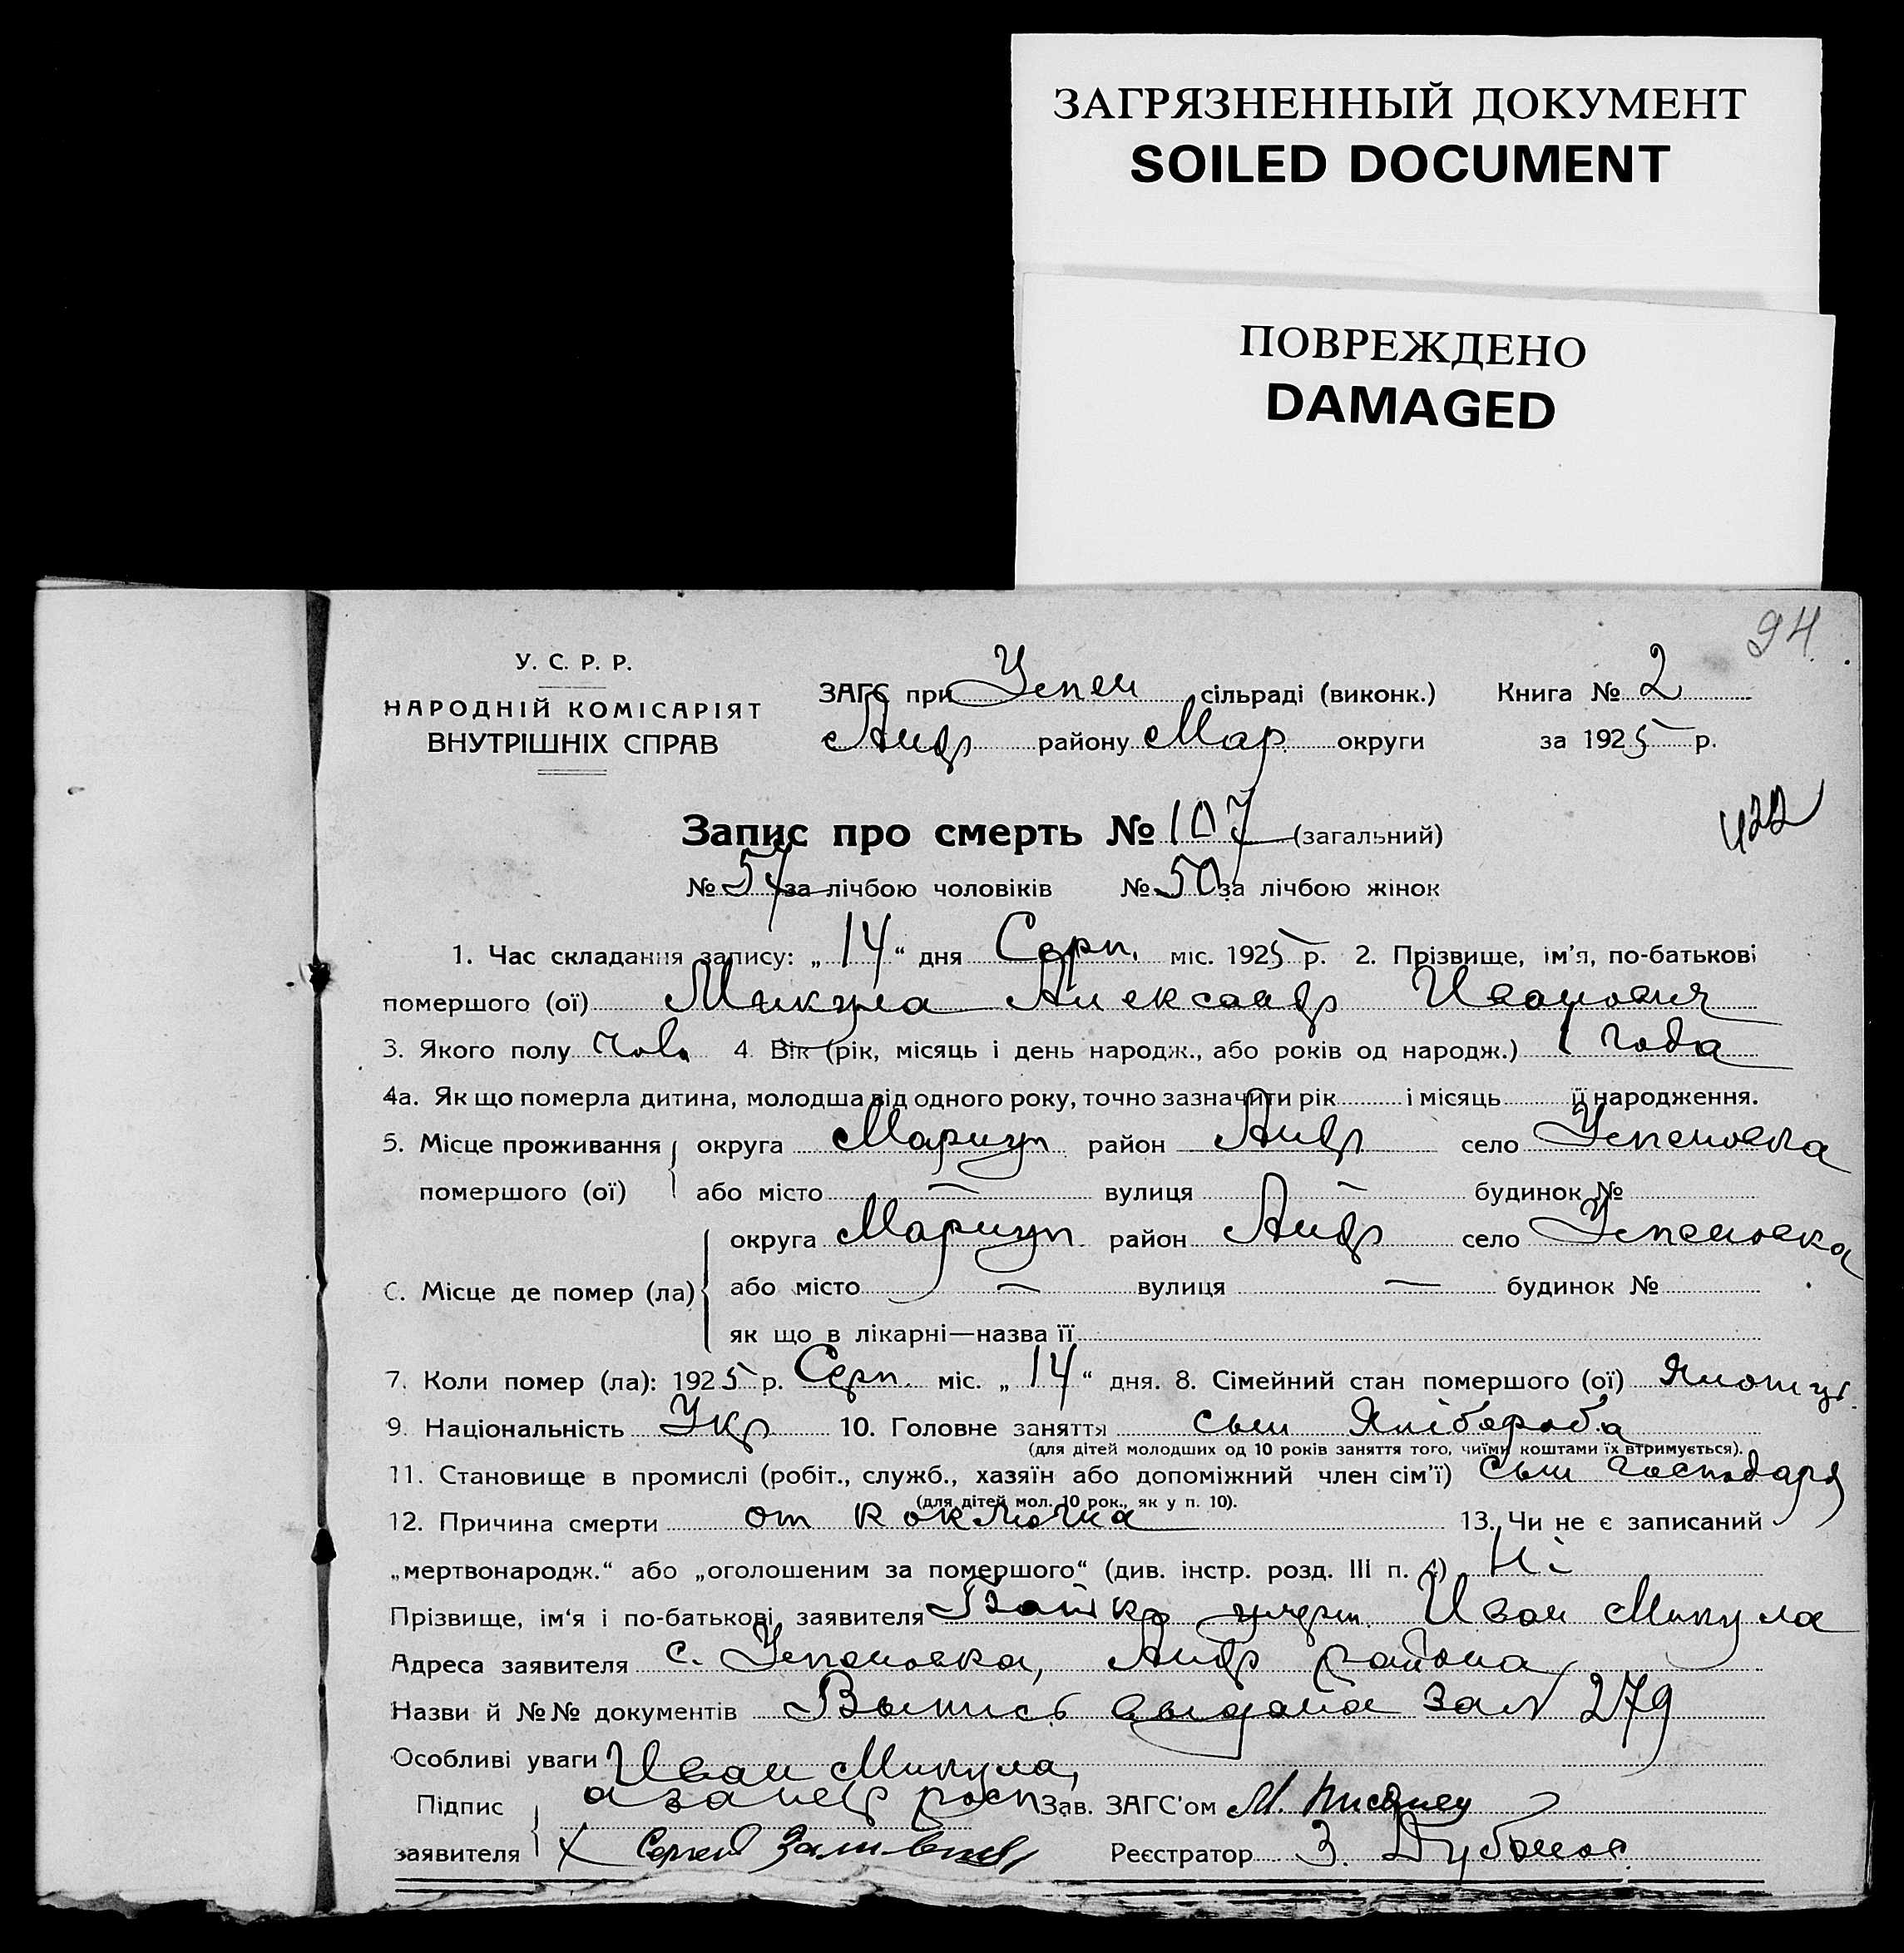 ЗАГРЯЗНЕННЫЙ ДОКУМЕНТ
SOILED DOCUMENT
ПОВРЕЖДЕНО
DAMAGED
94
У. С. Р. Р.
НАРОДНІЙ КОМІСАРІЯТ
ВНУТРІШНІХ СПРАВ
ЗАГС при Успен сільраді (виконк.) Книга № 2
Андр району Мар. округи за 1925 р.
422
Запис про смерть № 107 (загальний)
№ 57 за лічбою чоловіків № 50 за лічбою жінок
1. Час складання запису: „14“ дня Серп. міс. 1925 р. 2. Прізвище, ім'я, по-батькові
помершого (ої) Микула Александр Иванович
3. Якого полу чол. 4. Вік (рік, місяць і день народж., або років од народж.) 1 года
4а. Як що померла дитина, молодша від одного року, точно зазначити рік і місяць її народження.
5. Місце проживання округа Мариуп район Андр село Успеновка
помершого (ої) або місто — вулиця — будинок №
округа Мариуп район Андр село Успеновка
6. Місце де помер (ла) або місто — вулиця — будинок №
як що в лікарні—назва її
7. Коли помер (ла): 1925 р. Серп. міс. „14“ дня. 8. Сімейний стан помершого (ої)
9. Національність Укр 10. Головне заняття сын Хлібороба
(для дітей молодших од 10 років заняття того, чиїми коштами їх втримується).
11. Становище в промислі (робіт., служб., хазяїн або допоміжний член сім'ї) сын господаря
(для дітей мол. 10 рок., як у п. 10).
12. Причина смерти от коклюша 13. Чи не є записаний
„мертвонародж.“ або „оголошеним за помершого“ (див. інстр. розд. III п. 4) Ні
Прізвище, ім'я і по-батькові заявителя Батько умерш. Иван Микула
Адреса заявителя с. Успеновка, Андр района
Назви й №№ документів Выпись выдана за № 279
Особливі уваги Иван Микула,
Підпис а за него росп Зав. ЗАГС'ом М.
заявителя Х Сергей Реєстратор З.